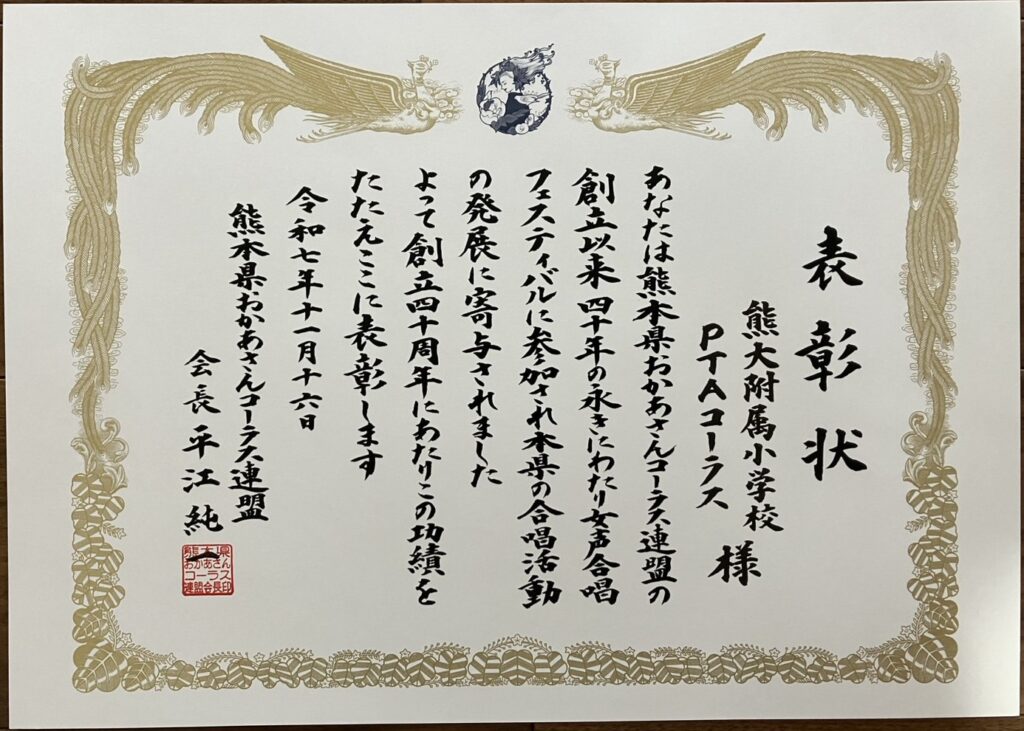 表彰状
熊大附属小学校
PTAコーラス 様
あなたは熊本県おかあさんコーラス連盟の
創立以来四十年の永きにわたり女声合唱
フェスティバルに参加され本県の合唱活動
の発展に寄与されました
よって創立四十周年にあたりこの功績を
たたえここに表彰します
令和七年十一月十六日
熊本県おかあさんコーラス連盟
会長 平江純一
熊本県
おかあさん
コーラス
連盟会長印